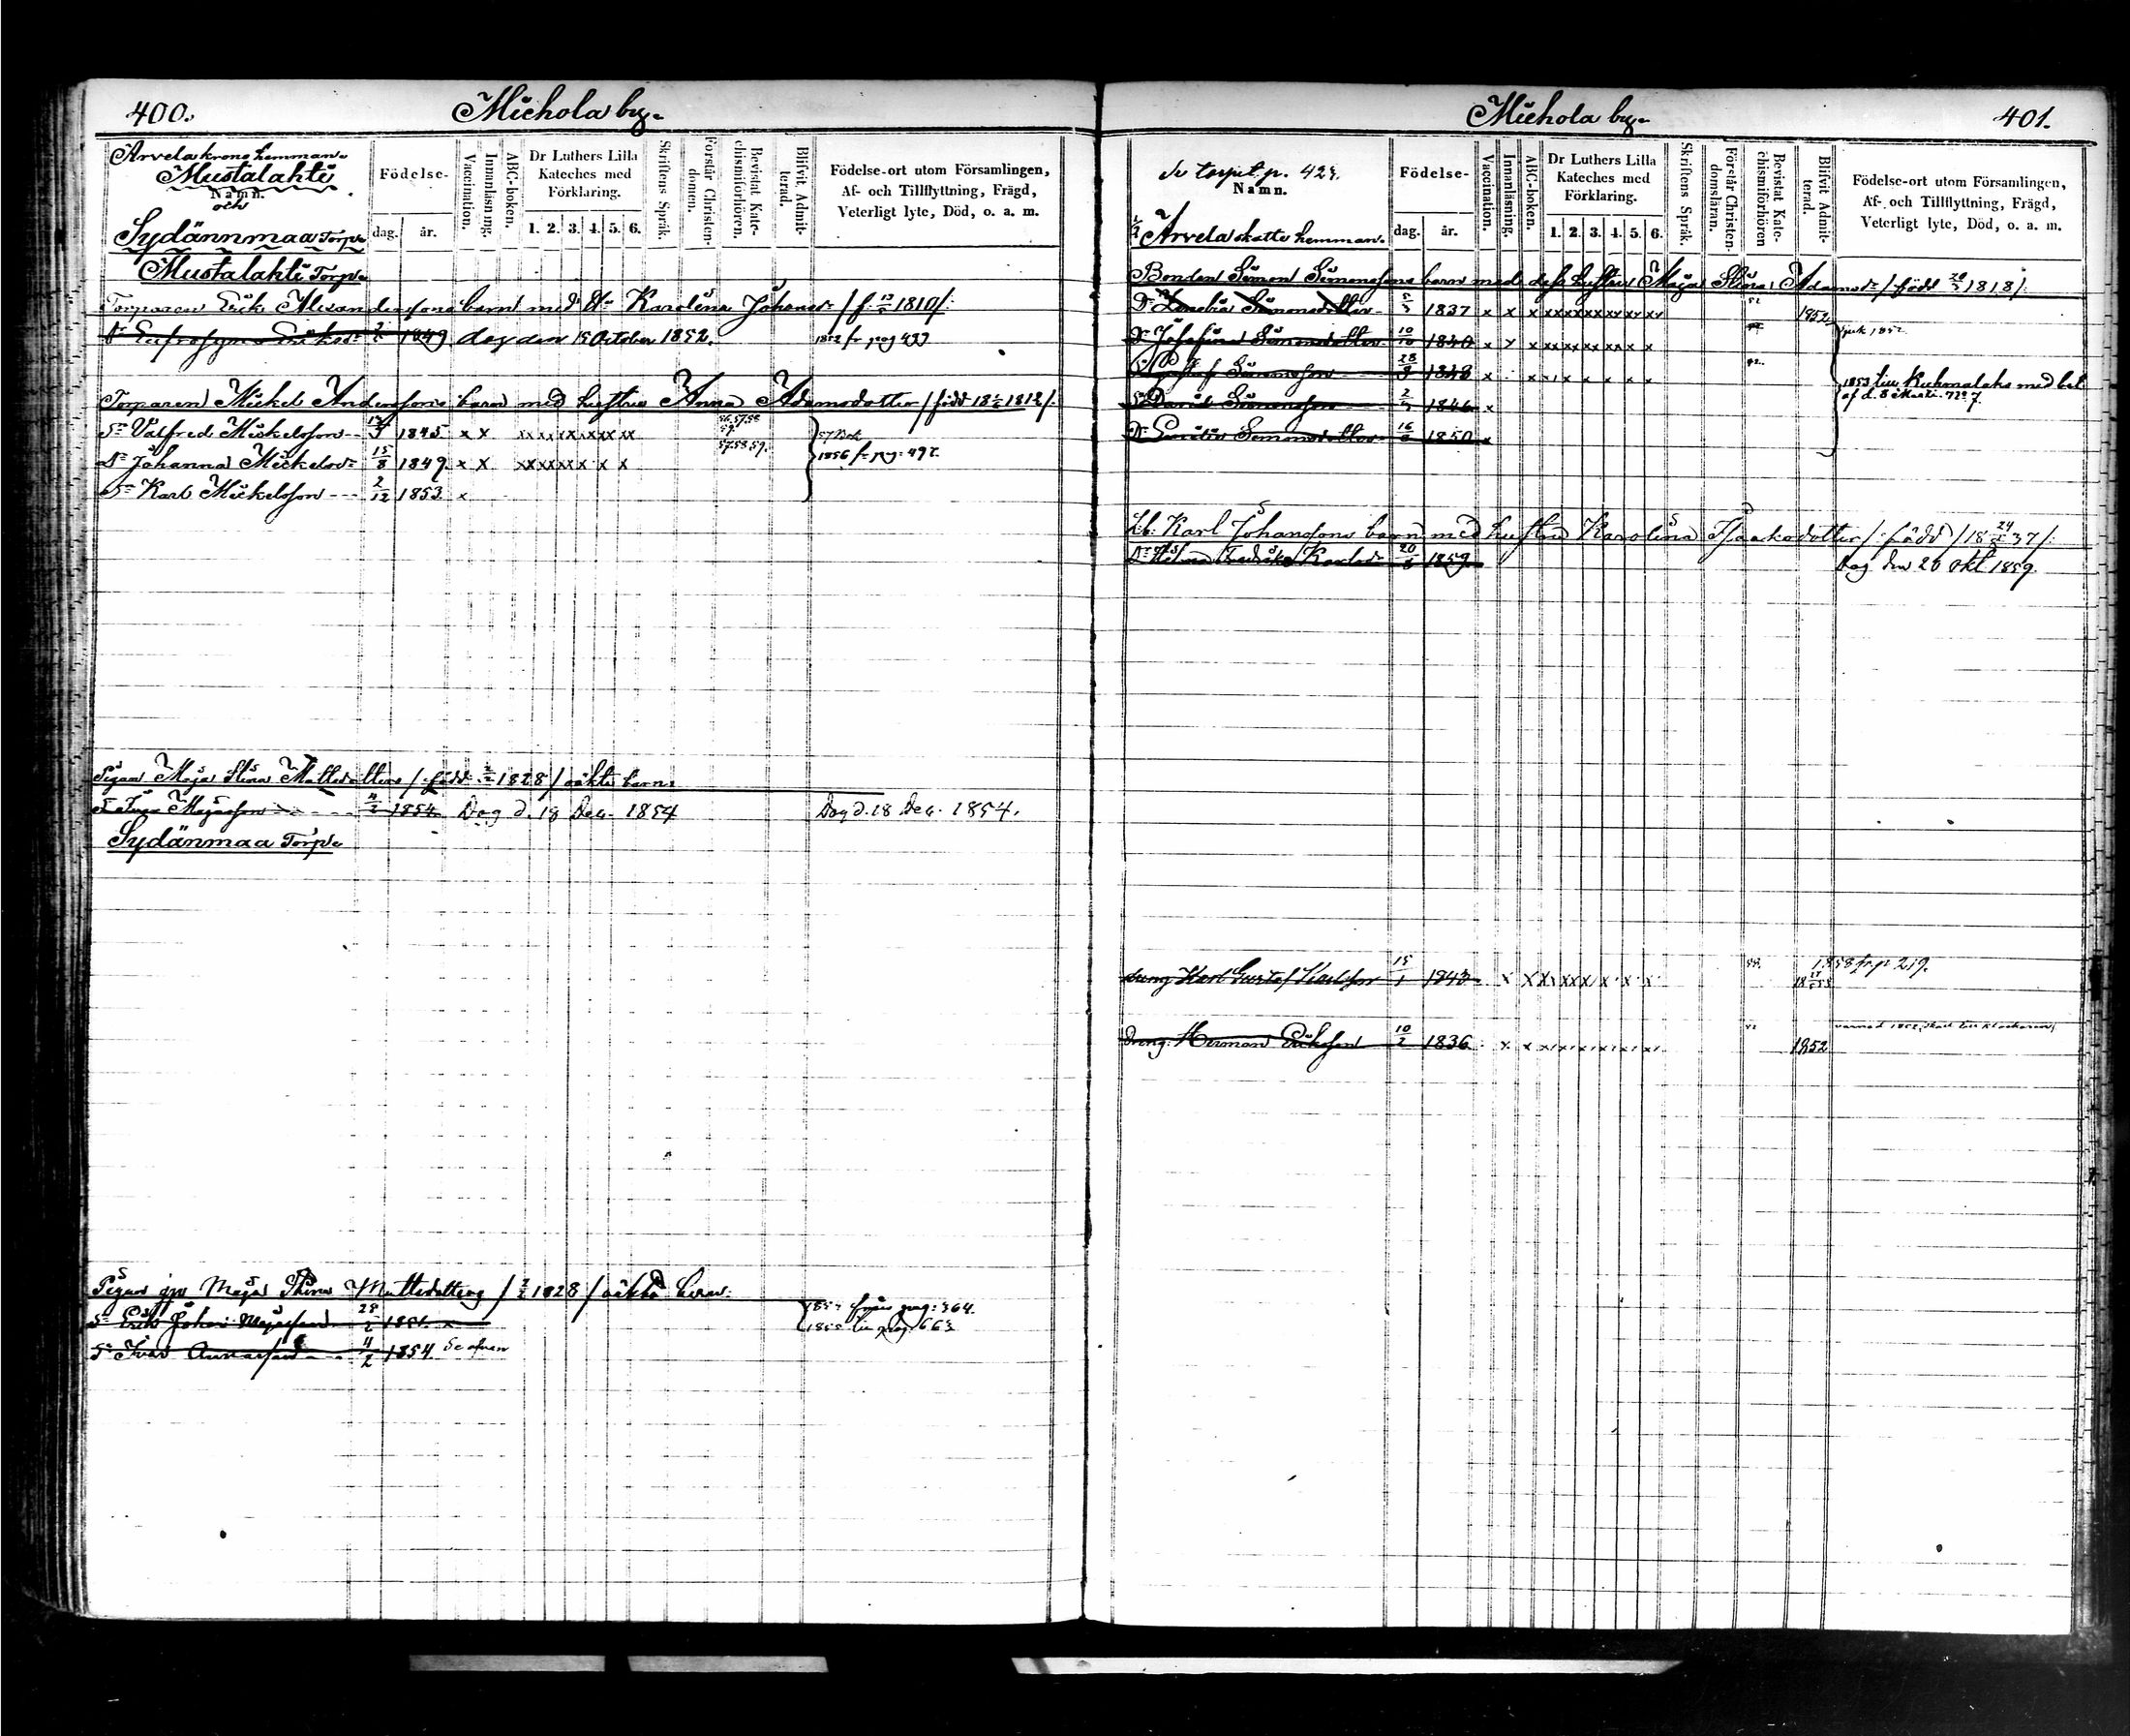 400.
Michola by.
Arvela krono hemman.
Mustalahti
Namn.
och
Sydännmaa Torp.
Födelse-
dag.
år.
Vaccination.
Innanläsning.
ABC-boken.
Dr Luthers Lilla
Kateches med
Förklaring.
1. 2. 3. 4. 5. 6.
Skriftens Språk.
Förstår Christen-
domen.
Bevistat Kate-
chismiförhören.
Blifvit Admit-
terad.
Födelse-ort utom Församlingen,
Af- och Tillflyttning, Frägd,
Veterligt lyte, Död, o. a. m.
Mustalahti Torp.
Torparen Erik Alexanderssons barn med H. Karolina Johansdr /f. 1810/:
Dr Eufrosyna Eriksdr 1849 dog den 15 October 1852. 1852 fr pag 493
Torparen Mickel Anderssons barn med hustru Anna Adamsdotter /född 1812/.
Sn Valfred Mickelsson 1845 x x xxxxxxxxxx 56.57.58 59.
Dr Johanna Mickelsdr 15/8 1849 x x xxxxxx x x 57.58.59. 1856 fr pag: 492
Sn Karl Mickelsson 2/12 1853 x
Pigan Maja Stina Mattsdotters /född 1828/ oäkta barn:
Sn Ivar Majasson 4/2 1854 Dog d. 18 Dec. 1854 Dog d. 18 Dec. 1854.
Sydänmaa Torp.
Pigan Maja Stina Mattsdotters / 1828 / oäkta barn:
Sn Erik Johan Majasson 28/2 1851. x från pag: 364.
till pag. 663
Sn Ivar 4/2 1854
Michola by.
401.
se torpet p. 423.
Namn.
1/2 Arvela skatte hemman.
Födelse-
dag.
år.
Vaccination.
Innanläsning.
ABC-boken.
Dr Luthers Lilla
Kateches med
Förklaring.
1. 2. 3. 4. 5. 6.
Skriftens Språk.
Förstår Christen-
domsläran.
Bevistat Kate-
chismiförhören
Blifvit Admit-
terad.
Födelse-ort utom Församlingen,
Af- och Tillflyttning, Frägd,
Veterligt lyte, Död, o. a. m.
Bonden Simon Simonssons barn med dess hustru Maja Stina Adamsdr /född 1818/.
Dr Simonsdotter 1837 x x x xxxxxxxxxx 52 1852
Dr Josefina Simonsdotter 10/10 1840 x x x xxxxxxxx x
Sn Gustaf Simonsson 28/9 1843 x x x x x x x x 52.
Sn David Simonsson 1846 x
1853 till Kuhmalaks med bet
af d. 8 Martii. No 7.
Dr Simonsdotter 16/ 1850 x
Karl Johanssons barn med hustru Karolina Isaksdotter /:född/ 18 24/ 37/:
Dr Fredrika Karlsdr 20/8 1859 Dog den 20 Okt 1859.
dräng Karl Gustaf Karlsson 15/1 1843 x x x x x x x x x 58. 1858 fr p. 219.
dräng: Herman Eriksson 10/2 1836 x x x x x x x x x 52 1852